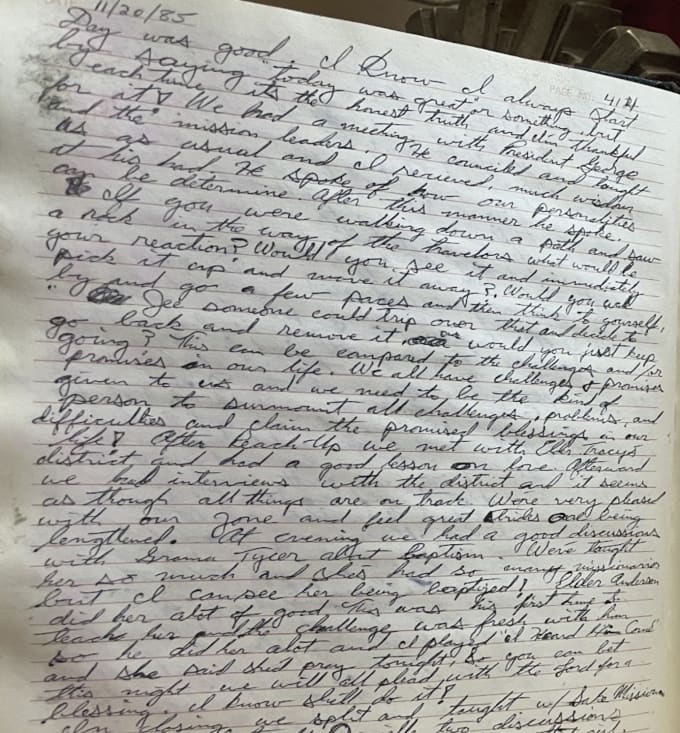 11/20/85
PAGE NO. 414
Day was good. I know I always start
by saying "today was great" or something, but
each time its the honest truth and I'm thankful
for it! We had a meeting with President George
and the mission leaders. He counciled and taught
as as usual and I recieved much wisdom
at his hand. He spoke of how our personalities
can be determine. After this manner he spoke.
If you were walking down a path and saw
a rock in the way of the travelors what would be
your reaction? Would you see it and immediately
pick it up and move it away? Would you walk
by and go a few paces and then think to yourself,
"Gee someone could trip over that and decide to
go back and remove it or would you just keep
going? This can be compared to the challenges and/or
promises in our life. We all have challenges & promises
given to us and we need to be the kind of
person to surmount all challenges, problems, and
difficulties and claim the promised blessings in our
life! After Reach-Up we met with Elder Tracy's
district and had a good lesson on love. Afterward
we had interviews with the district and it seems
as though all things are on track. Were very pleased
with our zone and feel great strides are being
lengthened. At evening we had a good discussions
with Grama Tycer about baptism. Were taught
her so much and she's had so many missionaries
but I can see her being baptized! Elder Andersen
did her alot of good. This was his first time to
teach her and the challenge was fresh with him
so he did her alot and I played "I Heard Him Come"
and she said she'd pray tonight. So you can bet
this night we will all plead with the Lord for a
blessing. I know she'll do it!
In closing we split and taught w/ Stake Mission
two discussions